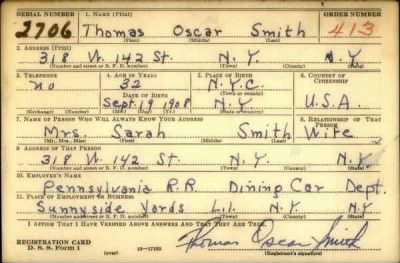 SERIAL NUMBER 1. NAME (Print) ORDER NUMBER
2706 Thomas Oscar Smith 413
(First) (Middle) (Last)
2. ADDRESS (Print)
318 W. 142 St. N.Y. N.Y.
(Number and street or R. F. D. number) (Town) (County) (State)
3. TELEPHONE 4. AGE IN YEARS 5. PLACE OF BIRTH 6. COUNTRY OF CITIZENSHIP
no 32 N.Y.C.
DATE OF BIRTH (Town or county)
Sept. 19 1908 N.Y U.S.A.
(Exchange) (Number) (Mo.) (Day) (Yr.) (State or country)
7. NAME OF PERSON WHO WILL ALWAYS KNOW YOUR ADDRESS 8. RELATIONSHIP OF THAT PERSON
Mrs. Sarah Smith Wife
(Mr., Mrs., Miss) (First) (Middle) (Last)
9. ADDRESS OF THAT PERSON
318 W. 142 St. N.Y. N.Y.
(Number and street or R. F. D. number) (Town) (County) (State)
10. EMPLOYER'S NAME
Pennsylvania R.R. Dining Car Dept.
11. PLACE OF EMPLOYMENT OR BUSINESS
Sunnyside Yards L.I. N.Y. N.Y
(Number and street or R. F. D. number) (Town) (County) (State)
I AFFIRM THAT I HAVE VERIFIED ABOVE ANSWERS AND THAT THEY ARE TRUE.
REGISTRATION CARD
D. S. S. Form 1 (over) 16—17105 Thomas Oscar Smith
(Registrant's signature)